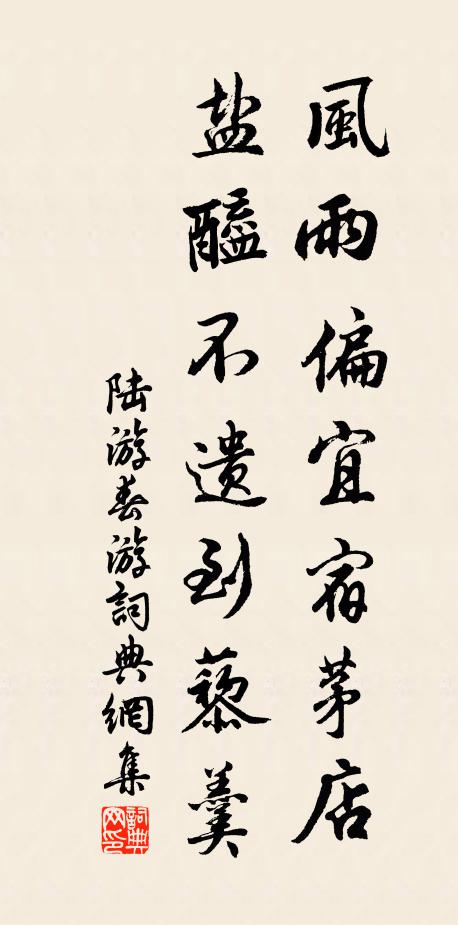 風雨偏宜宿茅店
盐醯不遣到藜羹
陆游春游詞典網集
詞典网印